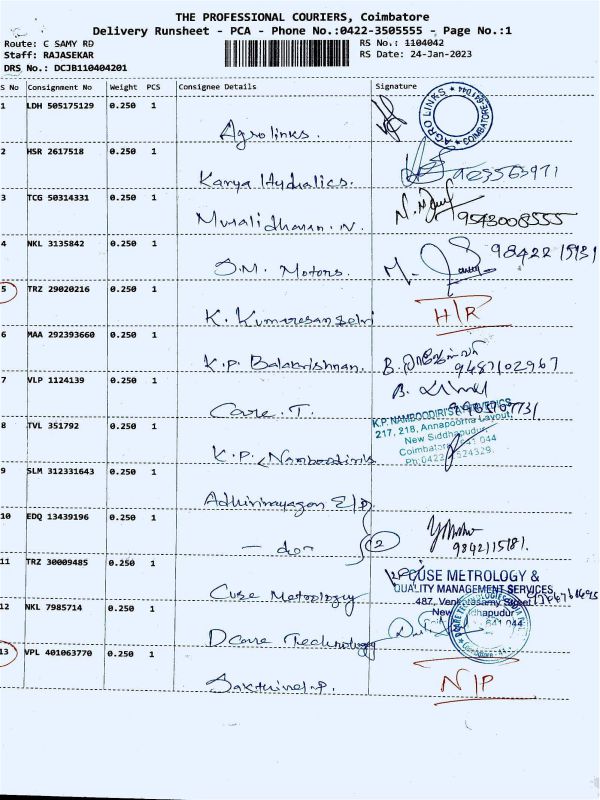 THE PROFESSIONAL COURIERS, Coimbatore
Delivery Runsheet - PCA - Phone No.:0422-3505555 - Page No.:1
Route: C SAMY RD
RS No.: 1104042
Staff: RAJASEKAR
RS Date: 24-Jan-2023
DRS No.: DCJB110404201
S No Consignment No Weight PCS Consignee Details Signature
1 LDH 505175129 0.250 1
Agrolinks.
AGRO LINKS COIMBATORE-641 044
2 HSR 2617518 0.250 1
Karya Hydralics.
3 TCG 50314331 0.250 1
Muralidharan. N. 9543008555
4 NKL 3135842 0.250 1
S.M. Motors.
5 TRZ 29020216 0.250 1
K. Kumaresan H/R
6 MAA 292393660 0.250 1
K.P. Balakrishnan. 9487102967
7 VLP 1124139 0.250 1
Care. T.
8 TVL 351792 0.250 1
K.P. NAMBOODIRI'S AYURVEDICS
217, 218, Annapoorna Layout,
New Siddhapudur,
K.P. Namboodiris
9 SLM 312331643 0.250 1
10 EDQ 13439196 0.250 1
- do - 2 9842115181.
11 TRZ 30009485 0.250 1
CUSE METROLOGY &
QUALITY MANAGEMENT SERVICES
Cuse Metrology
12 NKL 7985714 0.250 1
D Care Technology
13 VPL 401063770 0.250 1
Sakthivel.P. N/P